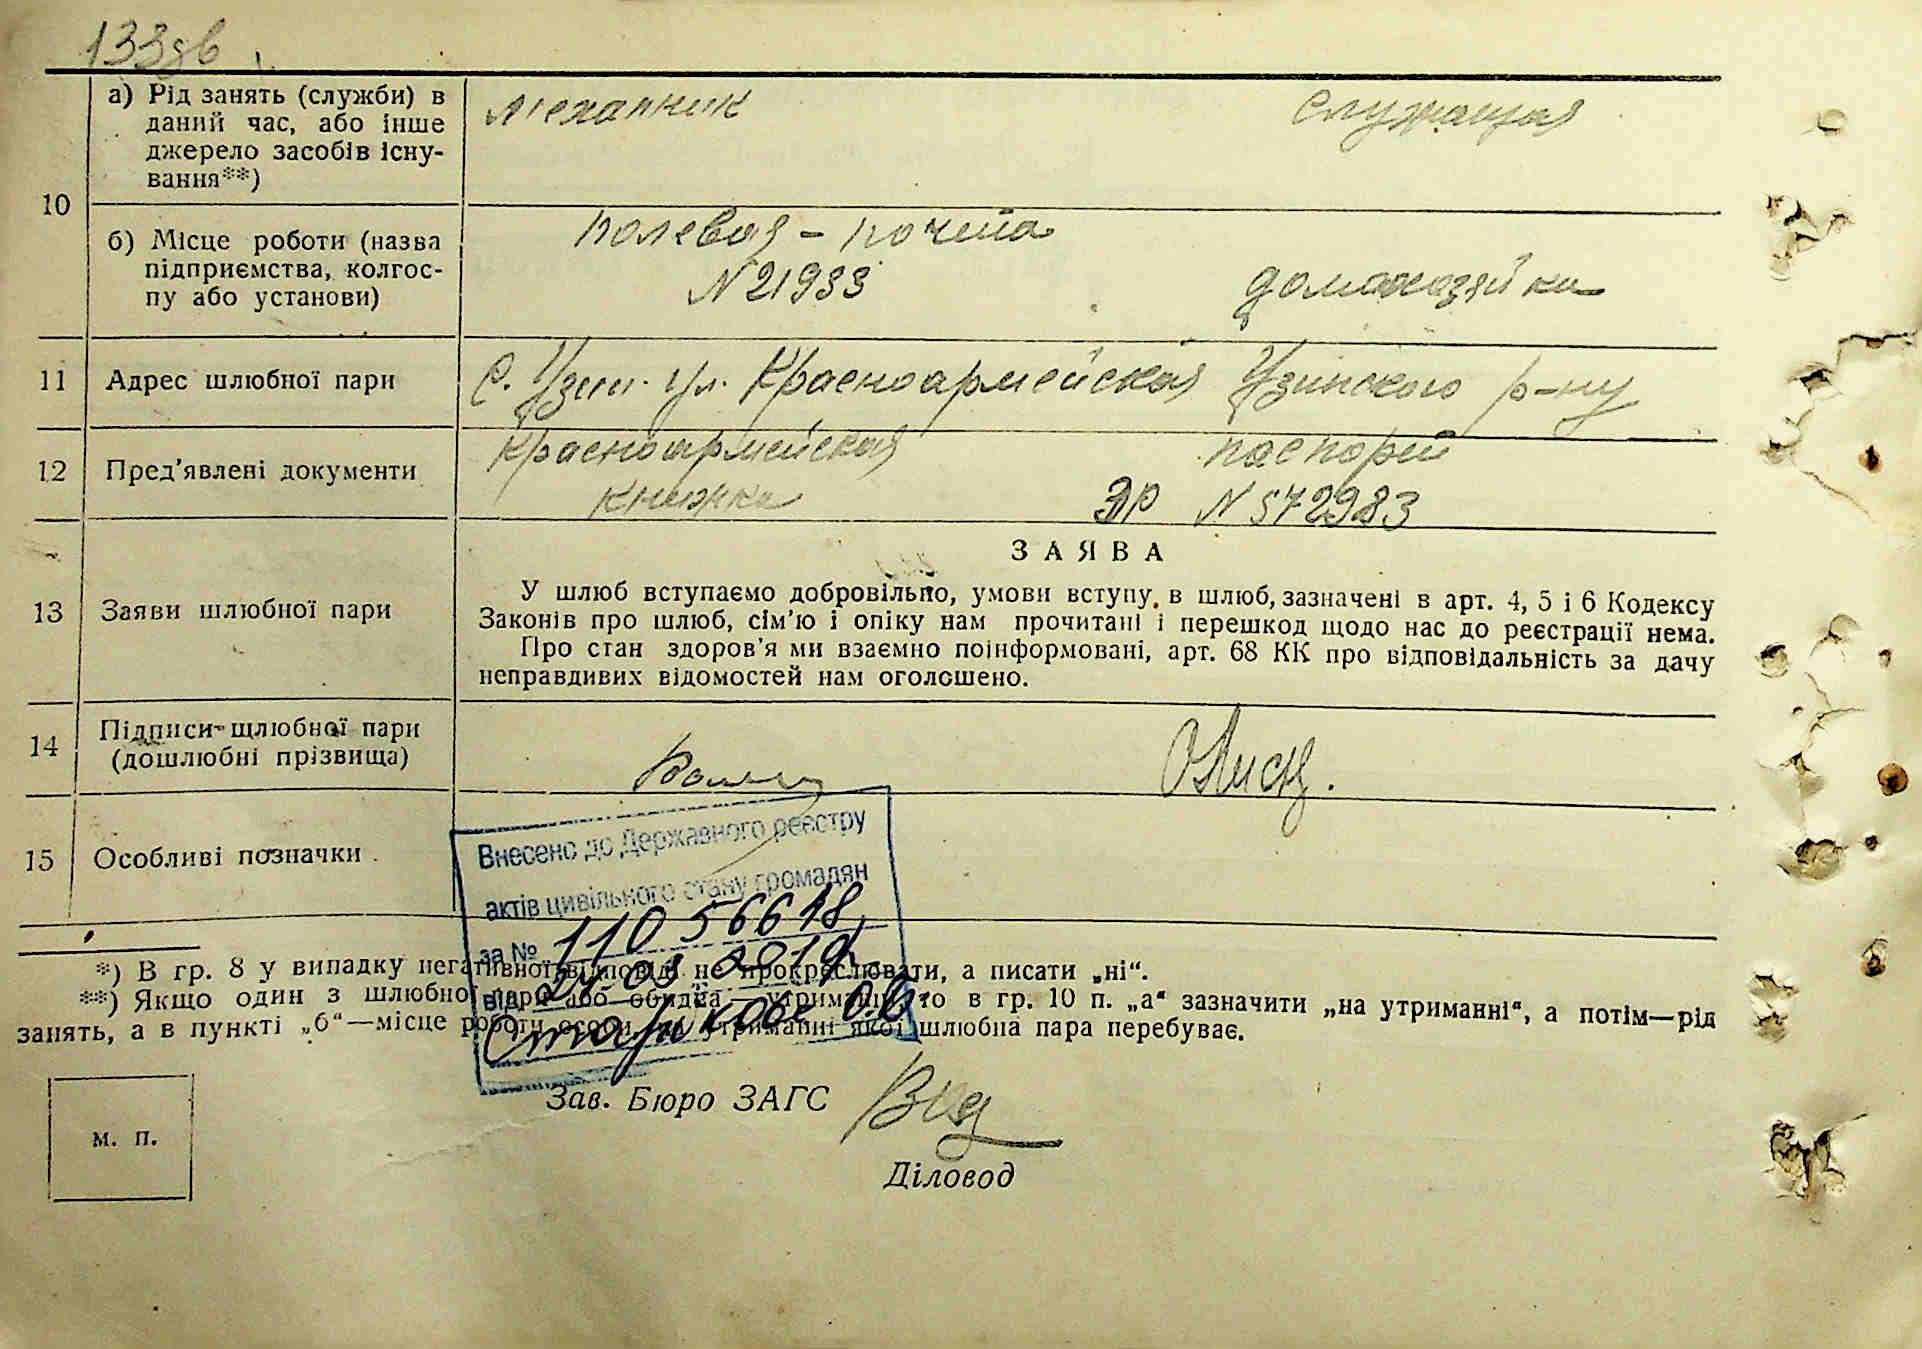 133зв
10
а) Рід занять (служби) в
даний час, або інше
джерело засобів існу-
вання**)
механик
служащая
б) Місце роботи (назва
підприємства, колгос-
пу або установи)
полевая - почта
N 21933
домохозяйка
11
Адрес шлюбної пари
с. Узин. ул. Красноармейская Узинского р-ну
12
Пред'явлені документи
Красноармейская
книжка
паспорт
ЭР N 572983
13
Заяви шлюбної пари
ЗАЯВА
У шлюб вступаємо добровільно, умови вступу в шлюб, зазначені в арт. 4, 5 і 6 Кодексу
Законів про шлюб, сім'ю і опіку нам прочитані і перешкод щодо нас до реєстрації нема.
Про стан здоров'я ми взаємно поінформовані, арт. 68 КК про відповідальність за дачу
неправдивих відомостей нам оголошено.
14
Підписи шлюбної пари
(дошлюбні прізвища)
15
Особливі позначки
Внесено до Державного реєстру
актів цивільного стану громадян
за № 110 56618
від
*) В гр. 8 у випадку негативної відповіді не прокреслювати, а писати „ні“.
**) Якщо один з шлюбної пари або обидва— утриманці, то в гр. 10 п. „а“ зазначити „на утриманні“, а потім—рід
занять, а в пункті „б“—місце роботи особи, на утриманні якої шлюбна пара перебуває.
Зав. Бюро ЗАГС
м. п.
Діловод